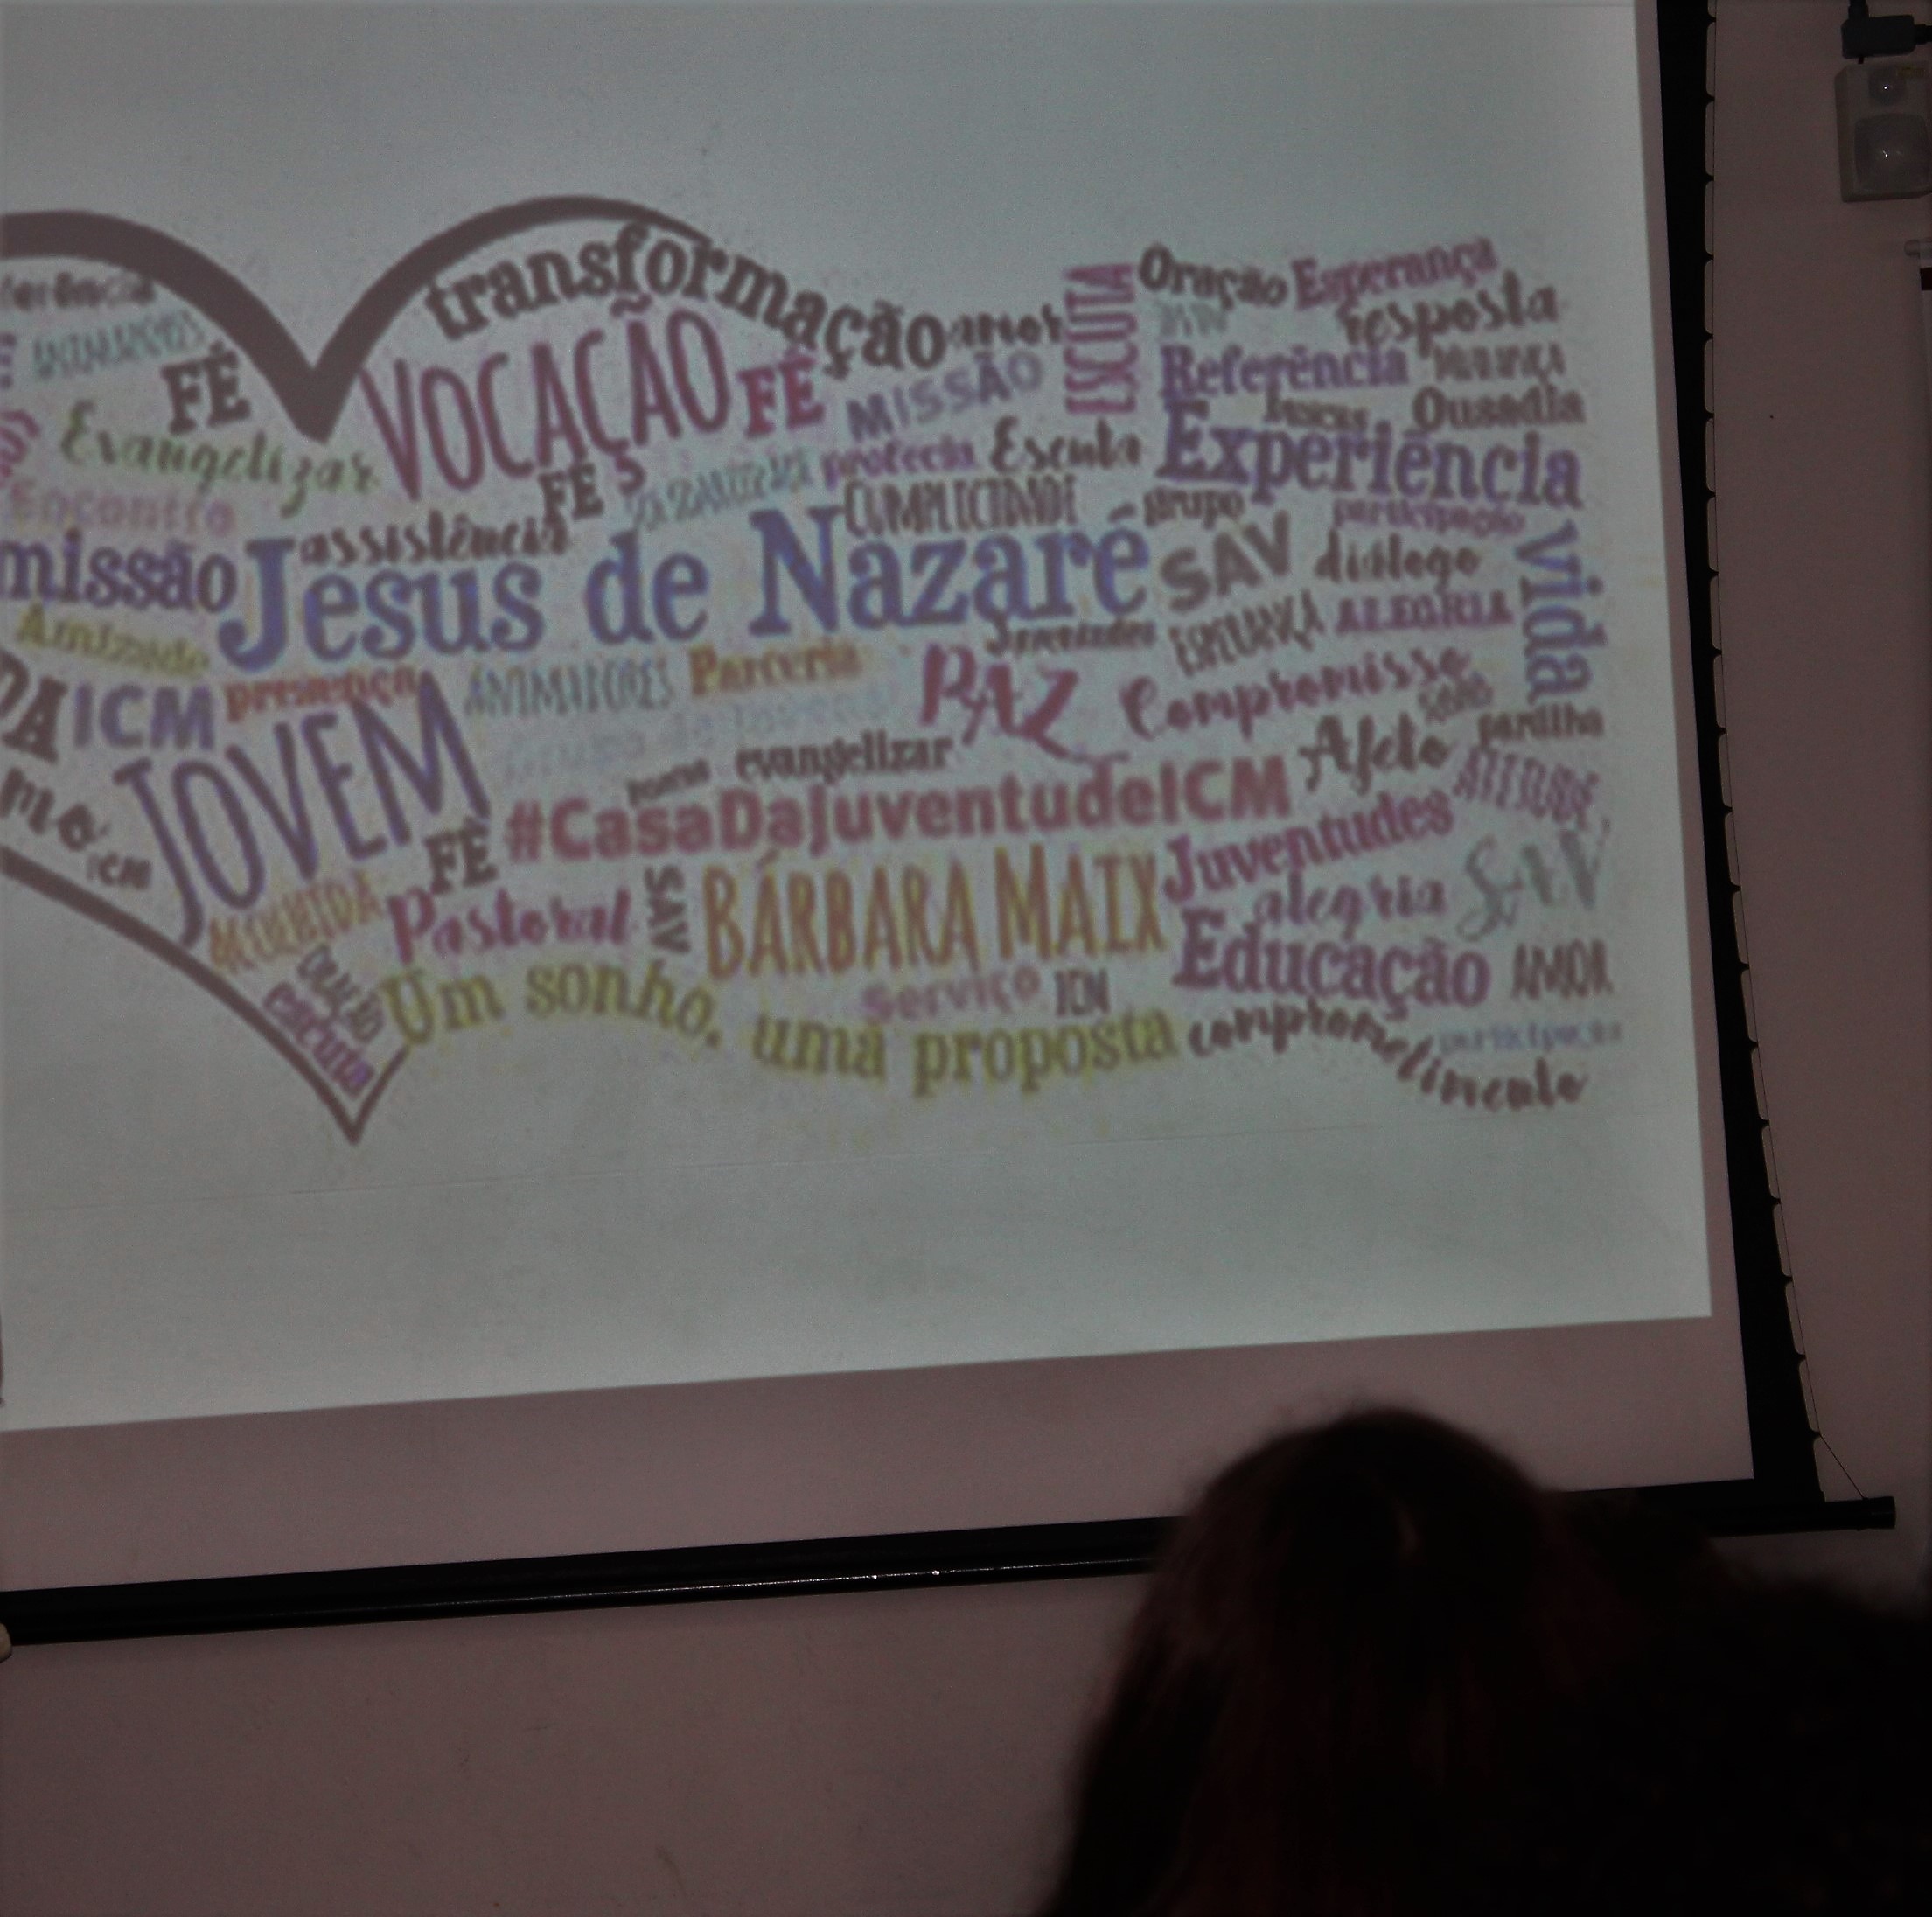 transformação
amor
ESCUTA
Oração
Esperança
resposta
ANIMADORES
FÉ
VOCAÇÃO
FÉ
MISSÃO
Referência
Ousadia
Evangelizar
profecia
Escuta
Experiência
Encontro
FÉ
CUMPLICIDADE
grupo
participação
missão
assistência
Jesus de Nazaré
SAV
diálogo
vida
Amizade
Juventudes
ESPERANÇA
ALEGRIA
ICM
presença
ANIMADORES
Parceria
PAZ
Compromisso
JOVEM
evangelizar
Afeto
partilha
ICM
FÉ
#CasaDaJuventudeICM
Juventudes
ACOLHIDA
Pastoral
SAV
BÁRBARA MAIX
alegria
SAV
ORAÇÃO
escuta
Um sonho, uma proposta
serviço
ICM
Educação
AMOR
comprometimento
participação